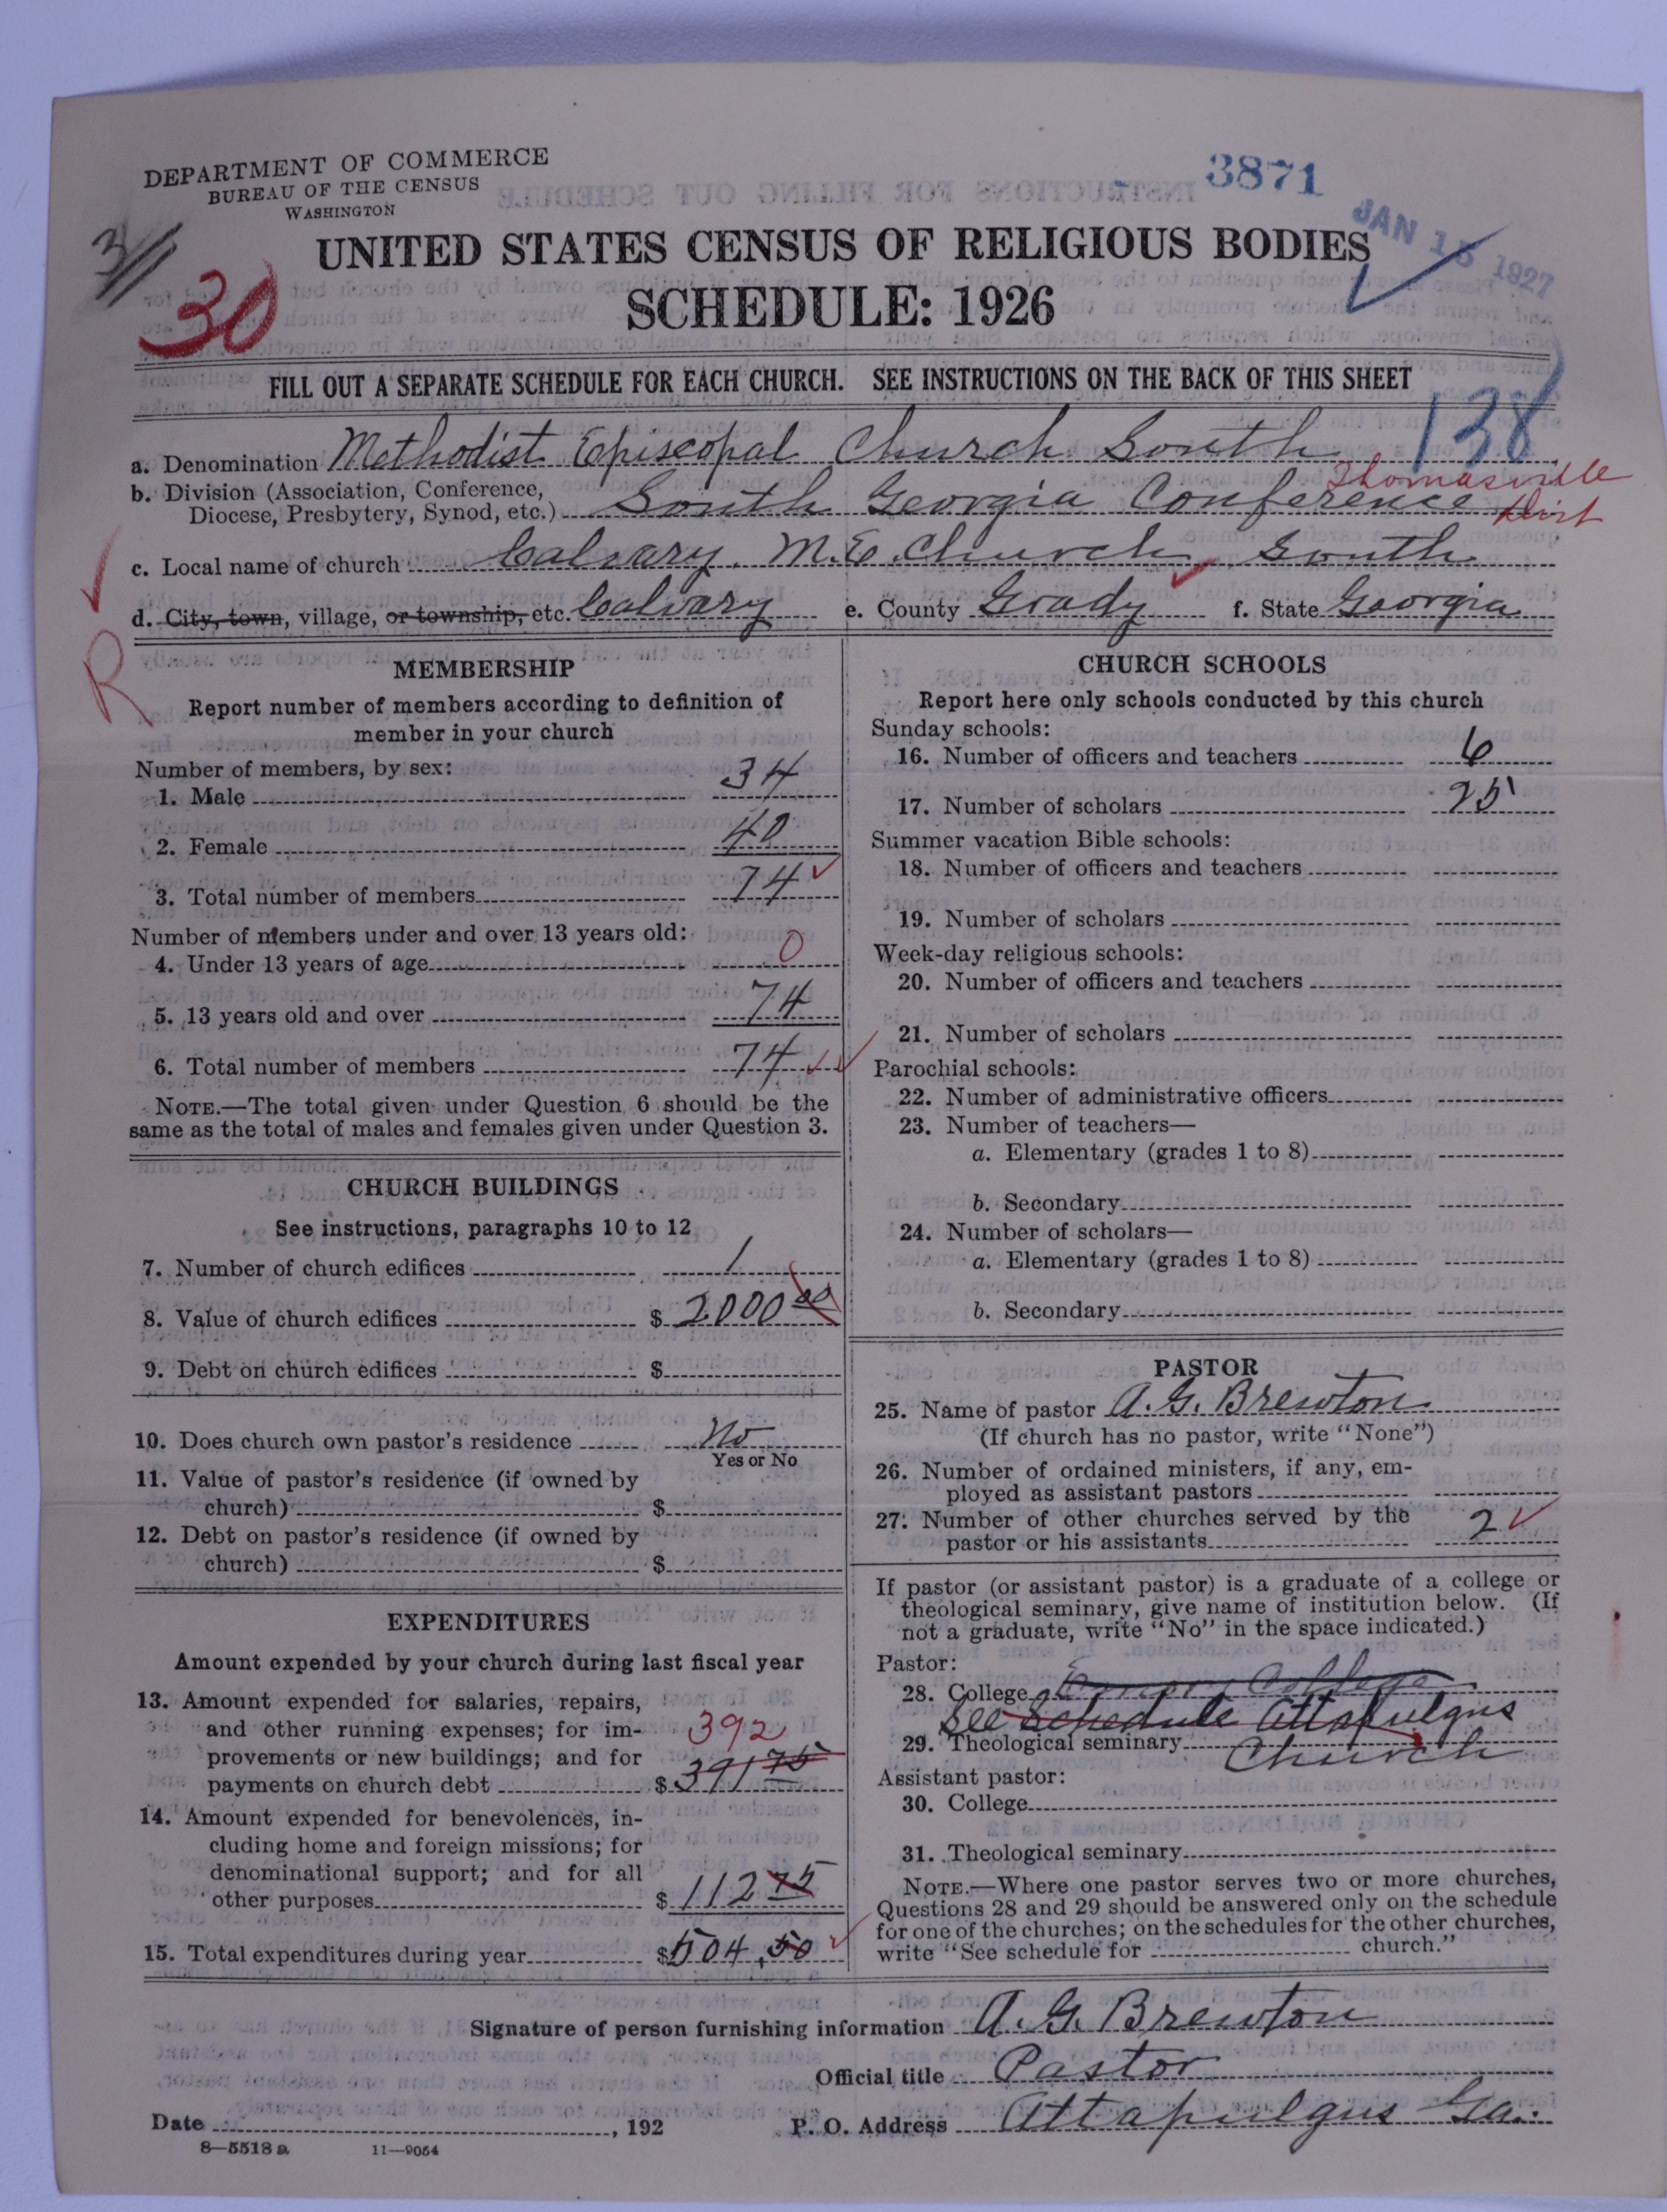 DEPARTMENT OF COMMERCE
BUREAU OF THE CENSUS
WASHINGTON
3871
JAN 15 1927
3
30
UNITED STATES CENSUS OF RELIGIOUS BODIES
SCHEDULE: 1926
FILL OUT A SEPARATE SCHEDULE FOR EACH CHURCH. SEE INSTRUCTIONS ON THE BACK OF THIS SHEET
138
a. Denomination Methodist Episcopal Church South
b. Division (Association, Conference, Diocese, Presbytery, Synod, etc.) South Georgia Conference Thomasville Dist
c. Local name of church Calvary M.E. Church South
d. City, town, village, or township, etc. Calvary e. County Grady f. State Georgia
R
MEMBERSHIP
Report number of members according to definition of
member in your church
Number of members, by sex:
1. Male 34
2. Female 40
3. Total number of members 74
Number of members under and over 13 years old:
4. Under 13 years of age 0
5. 13 years old and over 74
6. Total number of members 74
NOTE.—The total given under Question 6 should be the
same as the total of males and females given under Question 3.
CHURCH BUILDINGS
See instructions, paragraphs 10 to 12
7. Number of church edifices 1
8. Value of church edifices $ 2000 00
9. Debt on church edifices $
10. Does church own pastor's residence No
Yes or No
11. Value of pastor's residence (if owned by
church) $
12. Debt on pastor's residence (if owned by
church) $
EXPENDITURES
Amount expended by your church during last fiscal year
13. Amount expended for salaries, repairs,
and other running expenses; for im-
provements or new buildings; and for 392
payments on church debt $ 391 75
14. Amount expended for benevolences, in-
cluding home and foreign missions; for
denominational support; and for all
other purposes $ 112 75
15. Total expenditures during year $ 504.50
CHURCH SCHOOLS
Report here only schools conducted by this church
Sunday schools:
16. Number of officers and teachers 6
17. Number of scholars 25
Summer vacation Bible schools:
18. Number of officers and teachers
19. Number of scholars
Week-day religious schools:
20. Number of officers and teachers
21. Number of scholars
Parochial schools:
22. Number of administrative officers
23. Number of teachers—
a. Elementary (grades 1 to 8)
b. Secondary
24. Number of scholars—
a. Elementary (grades 1 to 8)
b. Secondary
PASTOR
25. Name of pastor A. G. Brewton
(If church has no pastor, write "None")
26. Number of ordained ministers, if any, em-
ployed as assistant pastors
27. Number of other churches served by the
pastor or his assistants 2
If pastor (or assistant pastor) is a graduate of a college or
theological seminary, give name of institution below. (If
not a graduate, write "No" in the space indicated.)
Pastor:
28. College Emory College
See Schedule Attapulgus
29. Theological seminary Church
Assistant pastor:
30. College
31. Theological seminary
NOTE.—Where one pastor serves two or more churches,
Questions 28 and 29 should be answered only on the schedule
for one of the churches; on the schedules for the other churches,
write "See schedule for church."
Signature of person furnishing information A. G. Brewton
Official title Pastor
Date , 192 P. O. Address Attapulgus Ga.
8—5518 a 11—9054